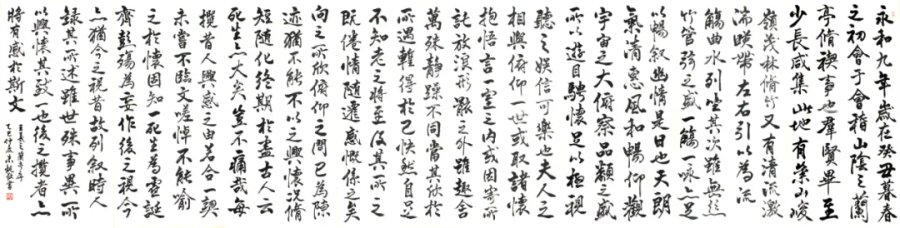 永和九年歲在癸丑暮春
之初會于會稽山陰之蘭
亭脩禊事也群賢畢至
少長咸集此地有崇山峻
嶺茂林脩竹又有清流激
湍暎帶左右引以為流
觴曲水列坐其次雖無絲
竹管弦之盛一觴一詠亦足
以暢叙幽情是日也天朗
氣清惠風和暢仰觀
宇宙之大俯察品類之盛
所以遊目騁懷足以極視
聽之娛信可樂也夫人之
相與俯仰一世或取諸懷
抱悟言一室之內或因寄所
託放浪形骸之外雖趣舍
萬殊靜躁不同當其欣於
所遇暫得於己快然自足
不知老之將至及其所之
既倦情隨遷感慨係之矣
向之所欣俯仰之間已為陳
迹猶不能不以之興懷況脩
短隨化終期於盡古人云
死生亦大矣豈不痛哉每
攬昔人興感之由若合一契
未嘗不臨文嗟悼不能喻
之於懷固知一死生為虛誕
齊彭殤為妄作後之視今
亦猶今之視昔故列叙時人
錄其所述雖世殊事異所
以興懷其致一也後之攬者亦
將有感於斯文
王羲之蘭亭序